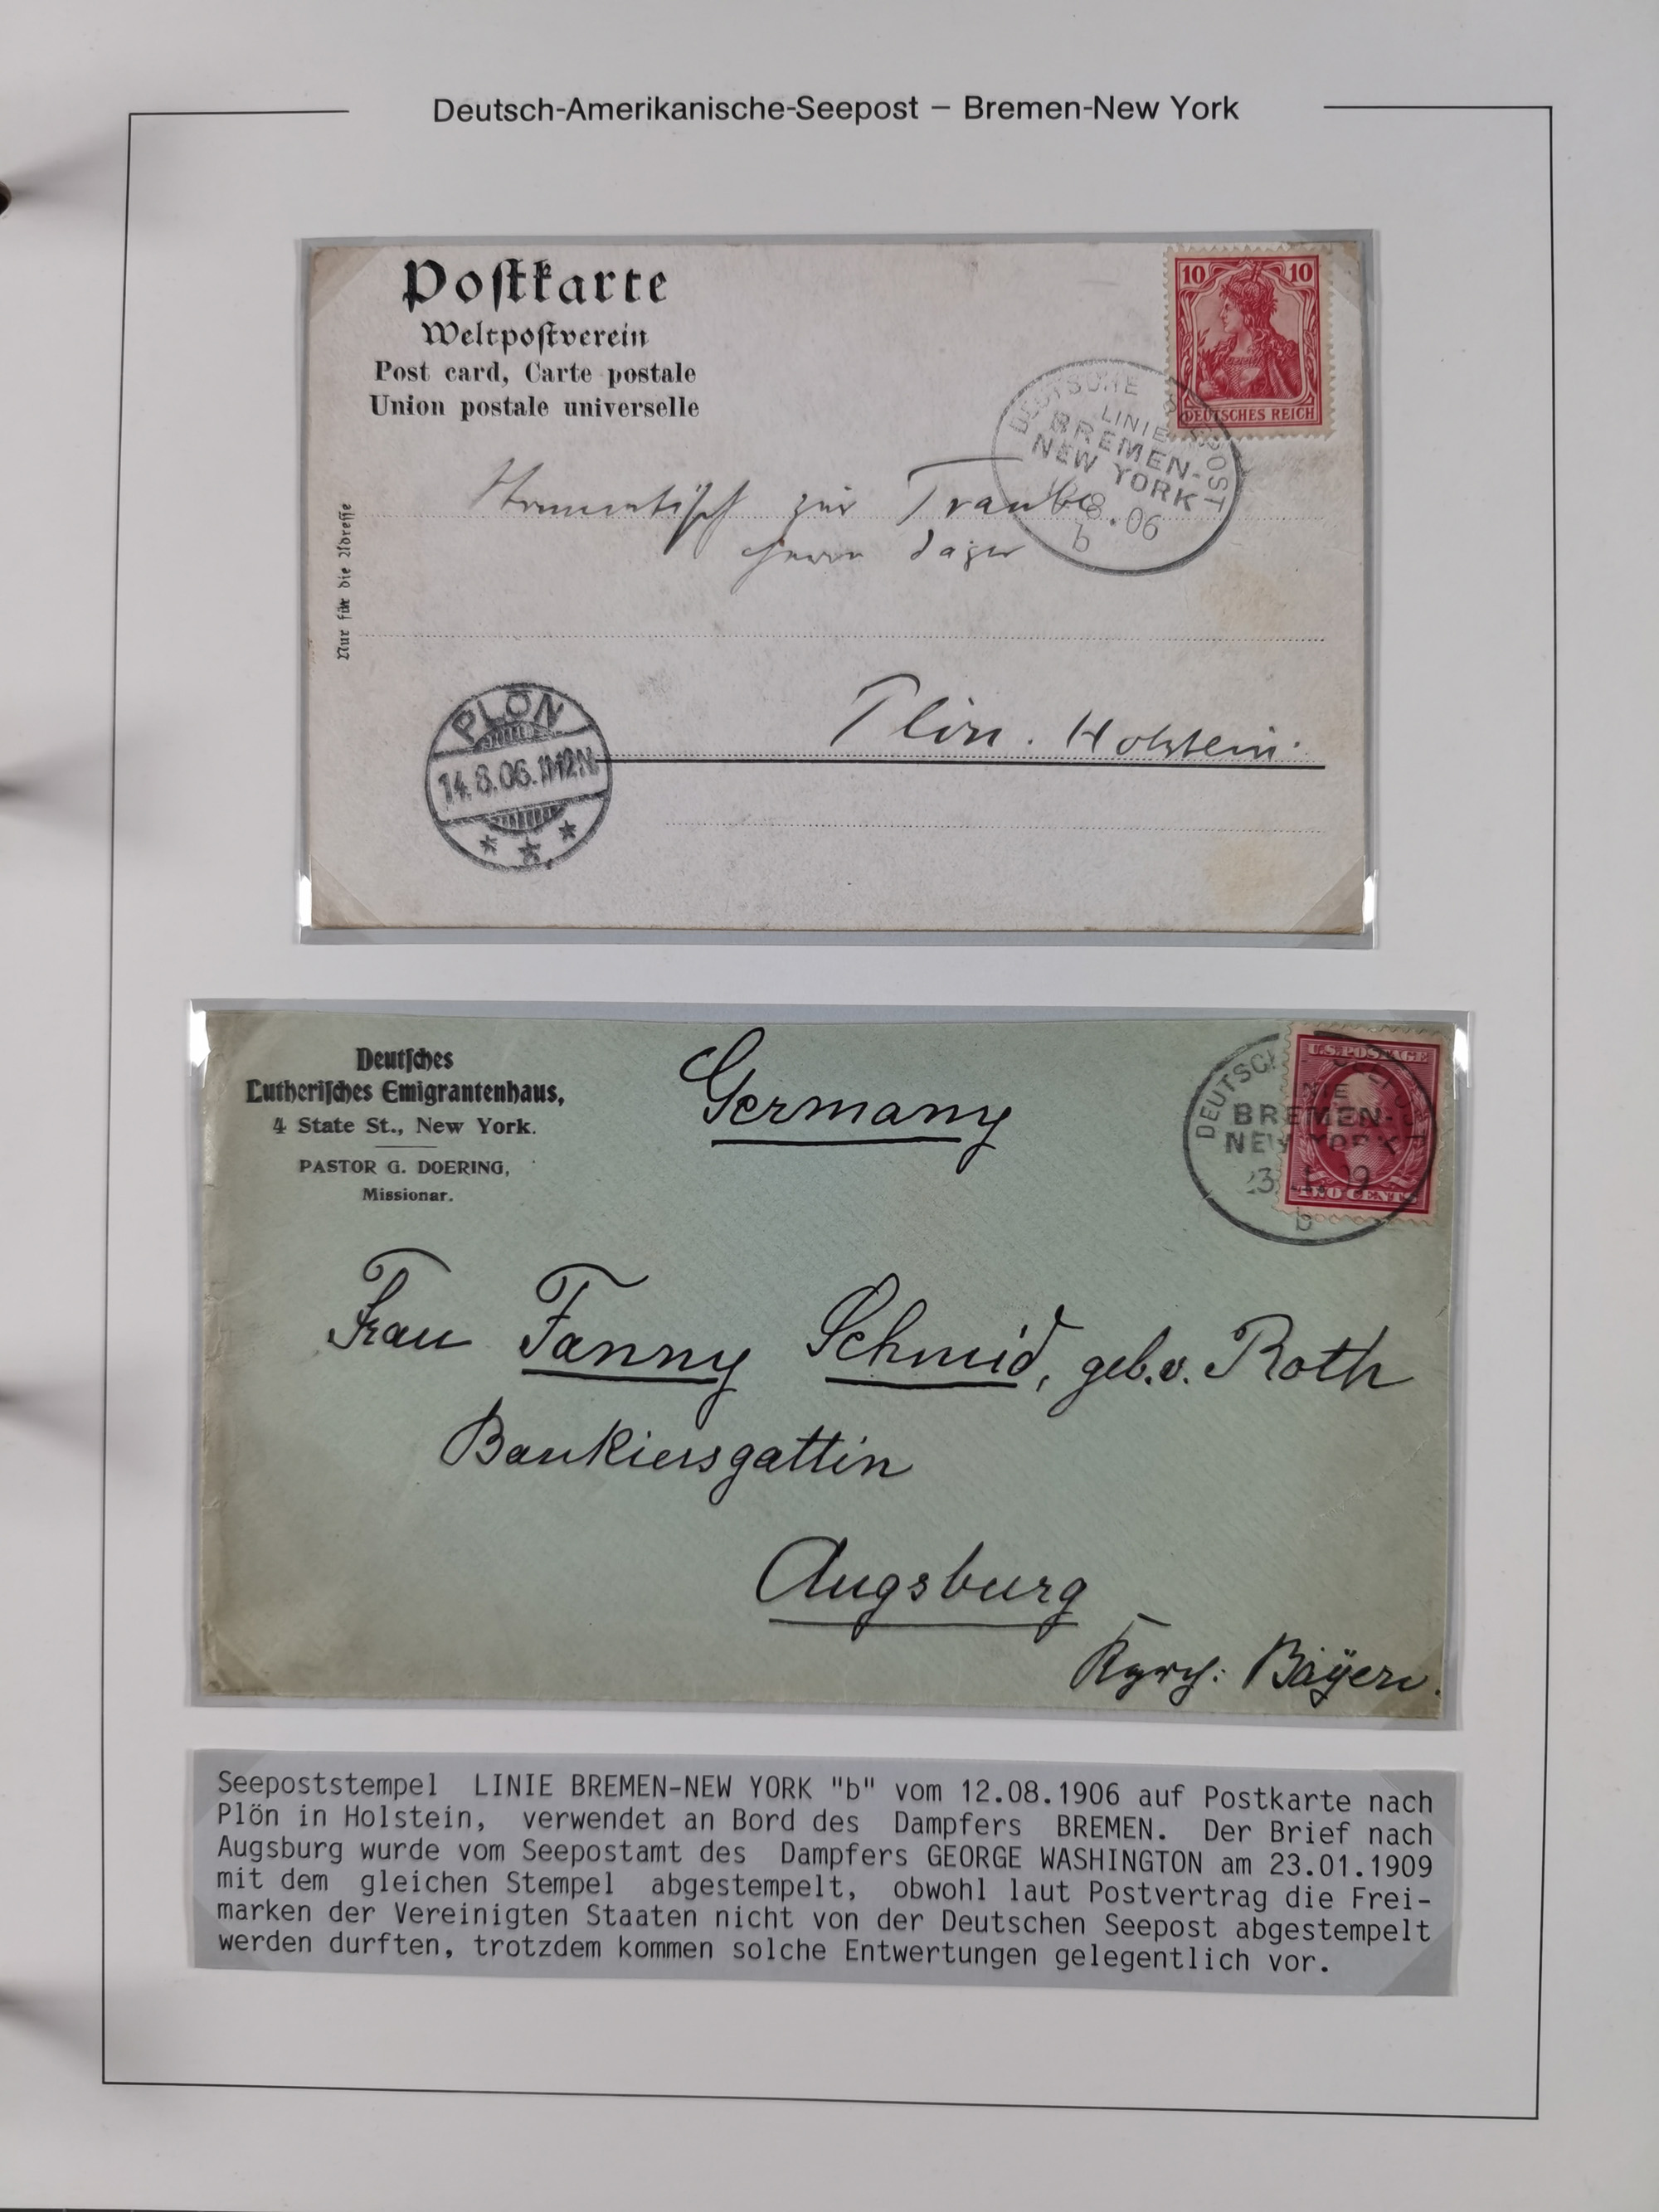 Deutsch-Amerikanische-Seepost – Bremen-New York
Postkarte
Weltpostverein
Post card, Carte postale
Union postale universelle
Nur für die Adresse
10 10
DEUTSCHES REICH
DEUTSCHE SEEPOST
LINIE
BREMEN-
NEW YORK
8.06
b
zur Traube
Herrn Jäger
Plön. Holstein.
PLÖN
14.8.06.11-12N.
Deutsches
Lutherisches Emigrantenhaus,
4 State St., New York.
PASTOR G. DOERING,
Missionar.
Germany
U.S. POSTAGE
TWO CENTS
DEUTSCHE SEEPOST
LINIE
BREMEN-
NEW YORK
23. 1. 09
b
Frau Fanny Schmid, geb. v. Roth
Bankiersgattin
Augsburg
Kgrch: Bayern.
Seepoststempel LINIE BREMEN-NEW YORK "b" vom 12.08.1906 auf Postkarte nach
Plön in Holstein, verwendet an Bord des Dampfers BREMEN. Der Brief nach
Augsburg wurde vom Seepostamt des Dampfers GEORGE WASHINGTON am 23.01.1909
mit dem gleichen Stempel abgestempelt, obwohl laut Postvertrag die Frei-
marken der Vereinigten Staaten nicht von der Deutschen Seepost abgestempelt
werden durften, trotzdem kommen solche Entwertungen gelegentlich vor.